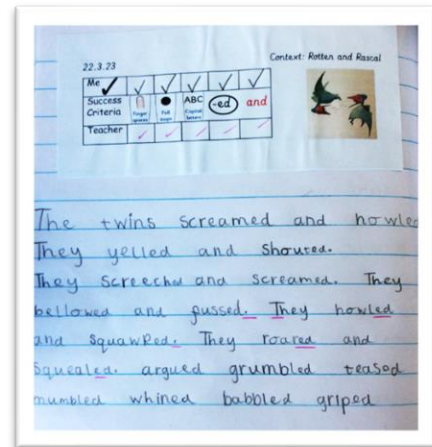 22.3.23
Context: Rotten and Rascal
Me
Success Criteria
Finger spaces
Full stops
ABC
Capital letters
-ed
and
Teacher
The twins screamed and howled
They yelled and shouted.
They screechd and screamed. They
bellowed and fussed. They howled
and squawked. They roared and
squealed. argued grumbled teased
mumbled whined babbled griped